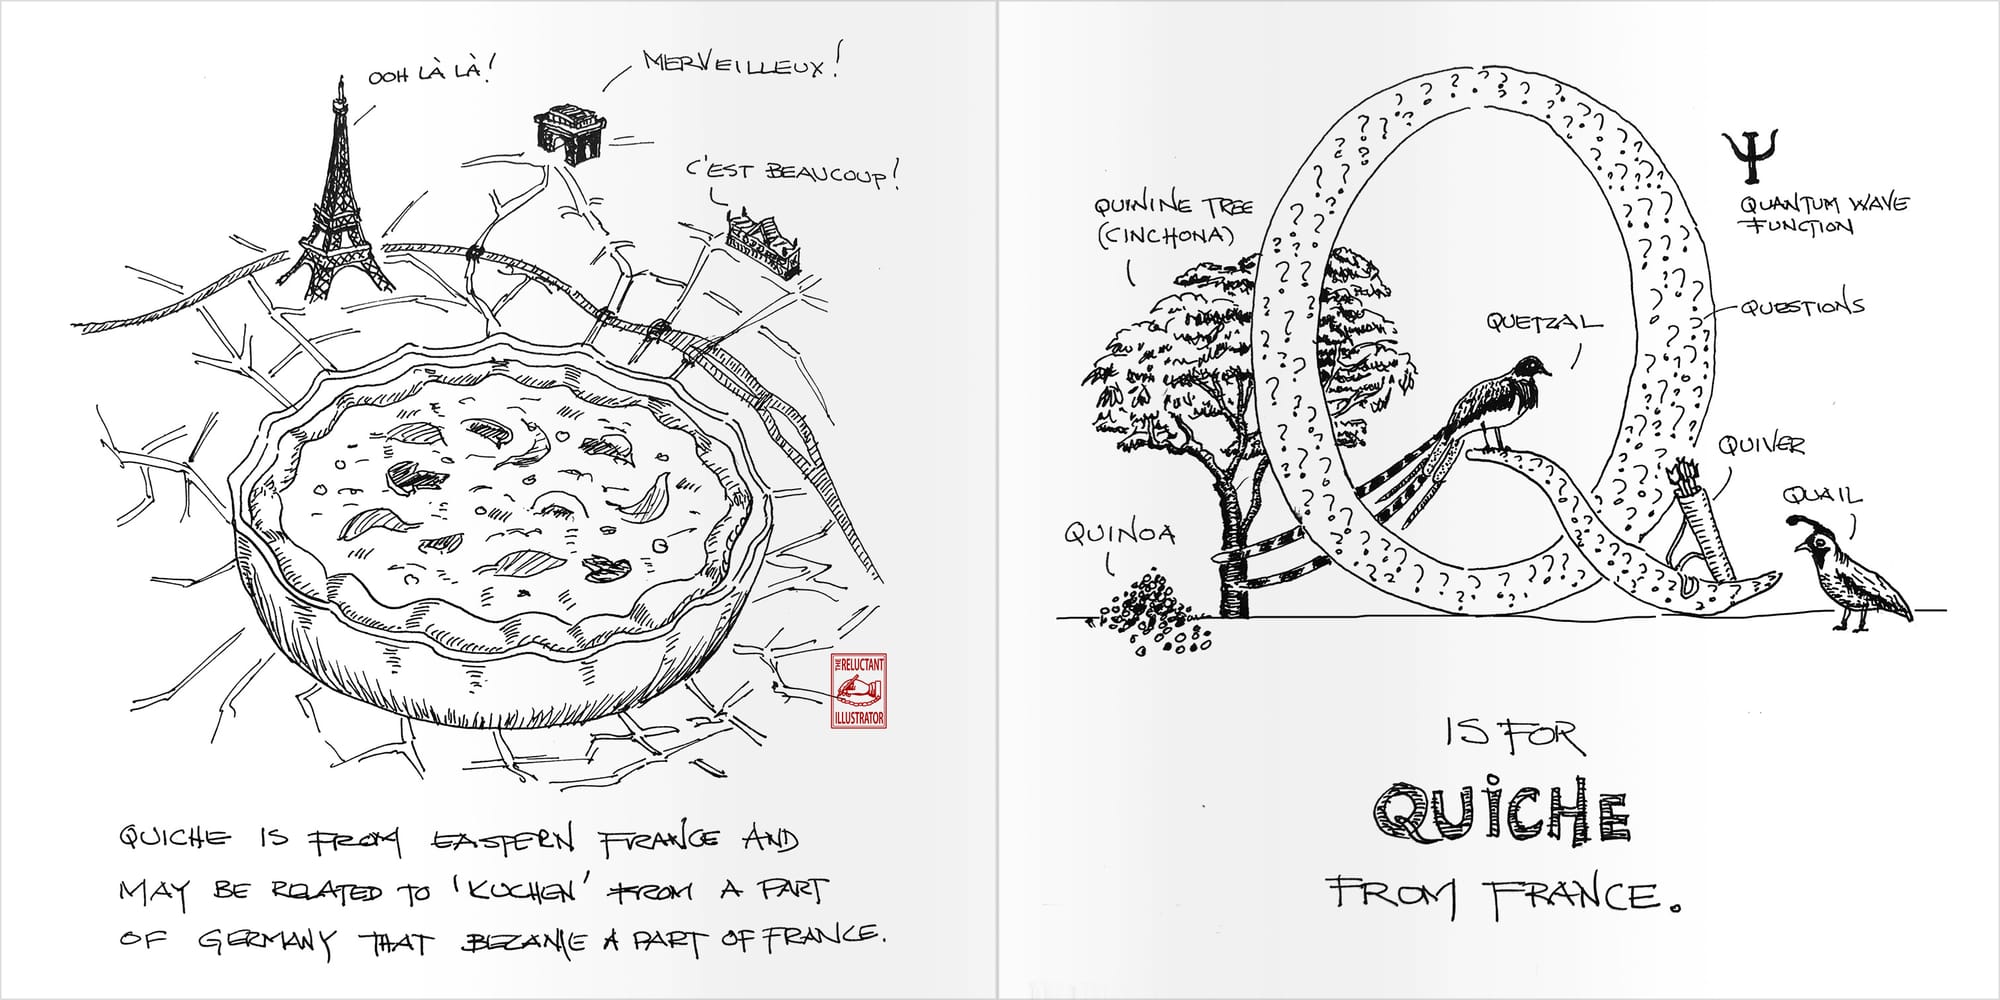 OOH LÀ LÀ!
MERVEILLEUX!
C'EST BEAUCOUP!
THE RELUCTANT
ILLUSTRATOR
QUICHE IS FROM EASTERN FRANCE AND
MAY BE RELATED TO 'KUCHEN' FROM A PART
OF GERMANY THAT BECAME A PART OF FRANCE.
Ψ
QUANTUM WAVE
FUNCTION
QUININE TREE
(CINCHONA)
QUESTIONS
QUETZAL
QUIVER
QUAIL
QUINOA
Q
IS FOR
QUiCHE
FROM FRANCE.